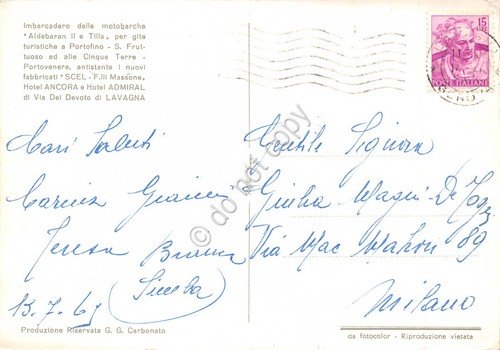 Imbarcadero delle motobarche
"Aldebaran II e Tilla, per gite
turistiche a Portofino - S. Frut-
tuoso ed alle Cinque Terre -
Portovenere, antistante i nuovi
fabbricati "SCEL - F.lli Massone.
Hotel ANCORA e Hotel ADMIRAL
di Via Dei Devoto di LAVAGNA
15
LIRE
POSTE ITALIANE
Cari Saluti
Teresa
13.7.69
Gentile Signora
Giulia
Via Mac Mahon 89
Milano
© do not copy
Produzione Riservata G. G. Carbonato
da fotocolor - Riproduzione vietata